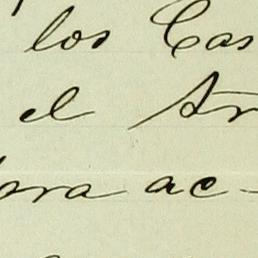 los Cas
el Ar
ora ac-